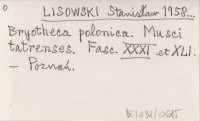 o
LISOWSKI Stanisław 1958...
Bryotheca polonica. Musci
tatrenses. Fasc. XXXI et XLI.
– Poznań.